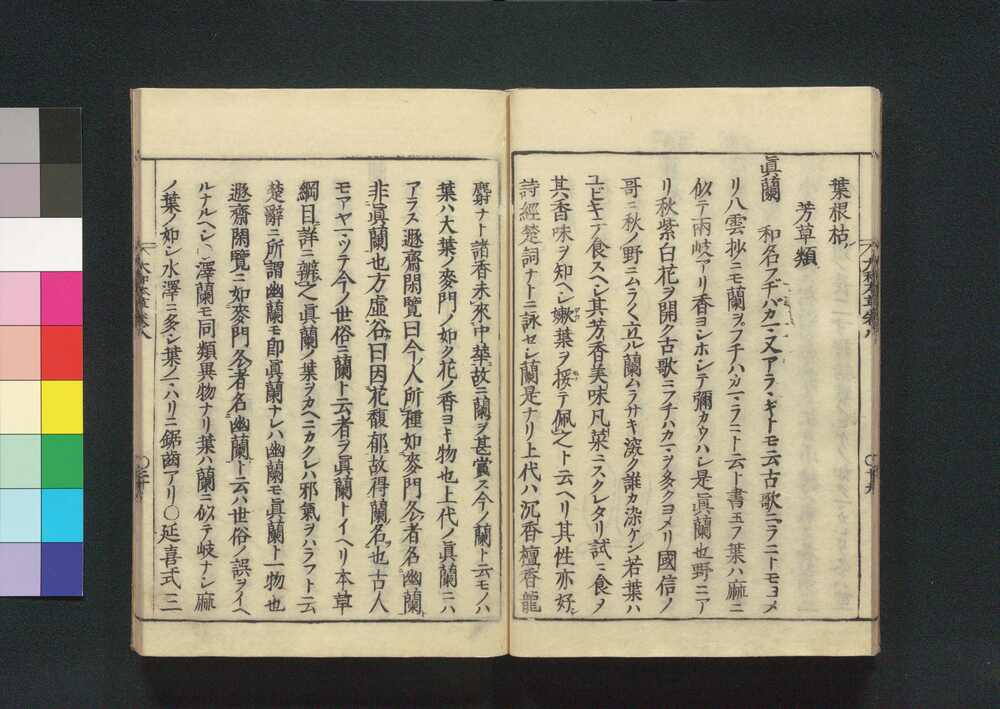 葉根枯
芳草類
眞蘭 和名フヂバカマ又アラヽギトモ云古歌ニラニトモヨメ
リ八雲抄ニモ蘭ヲフチハカマラニト云ト書玉フ葉ハ麻ニ
似テ兩岐アリ香ヨシホシテ彌カウハシ是眞蘭也野ニア
リ秋紫白花ヲ開ク古歌ニフチハカマヲ多クヨメリ國信ノ
哥ニ秋ノ野ニムラ〱立ル蘭ムラサキ深ク誰カ染ケン若葉ハ
ユビキテ食スヘシ其芳香美味凡菜ニスクレタリ試ニ食メ
其香味ヲ知ヘシ嫩葉ヲ挼テ佩之ト云ヘリ其性亦好シ
詩經楚詞ナトニ詠セシ蘭是ナリ上代ハ沉香檀香龍
麝ナト諸香未來中華故ニ蘭ヲ甚賞ス今ノ蘭ト云モノハ
葉ハ大葉ノ麥門ノ如ク花ノ香ヨキ物也上代ノ眞蘭ニハ
アラス遯齋閑覽曰今人所種如麥門冬者名幽蘭
非眞蘭也方虛谷曰因花馥郁故得蘭名也古人
モアヤマツテ今ノ世俗ニ蘭ト云者ヲ眞蘭トイヘリ本草
綱目詳ニ辨之眞蘭ノ葉ヲカヘニカクレハ邪氣ヲハラフト云
楚辭ニ所謂幽蘭モ即眞蘭ナレハ幽蘭モ眞蘭ト一物也
遯齋閑覽ニ如麥門冬者名幽蘭ト云ハ世俗ノ誤ヲイヘ
ルナルヘシ〇澤蘭モ同類異物ナリ葉ハ蘭ニ似テ岐ナシ麻
ノ葉ノ如シ水澤ニ多シ葉ノマハリニ鋸齒アリ〇延喜式三